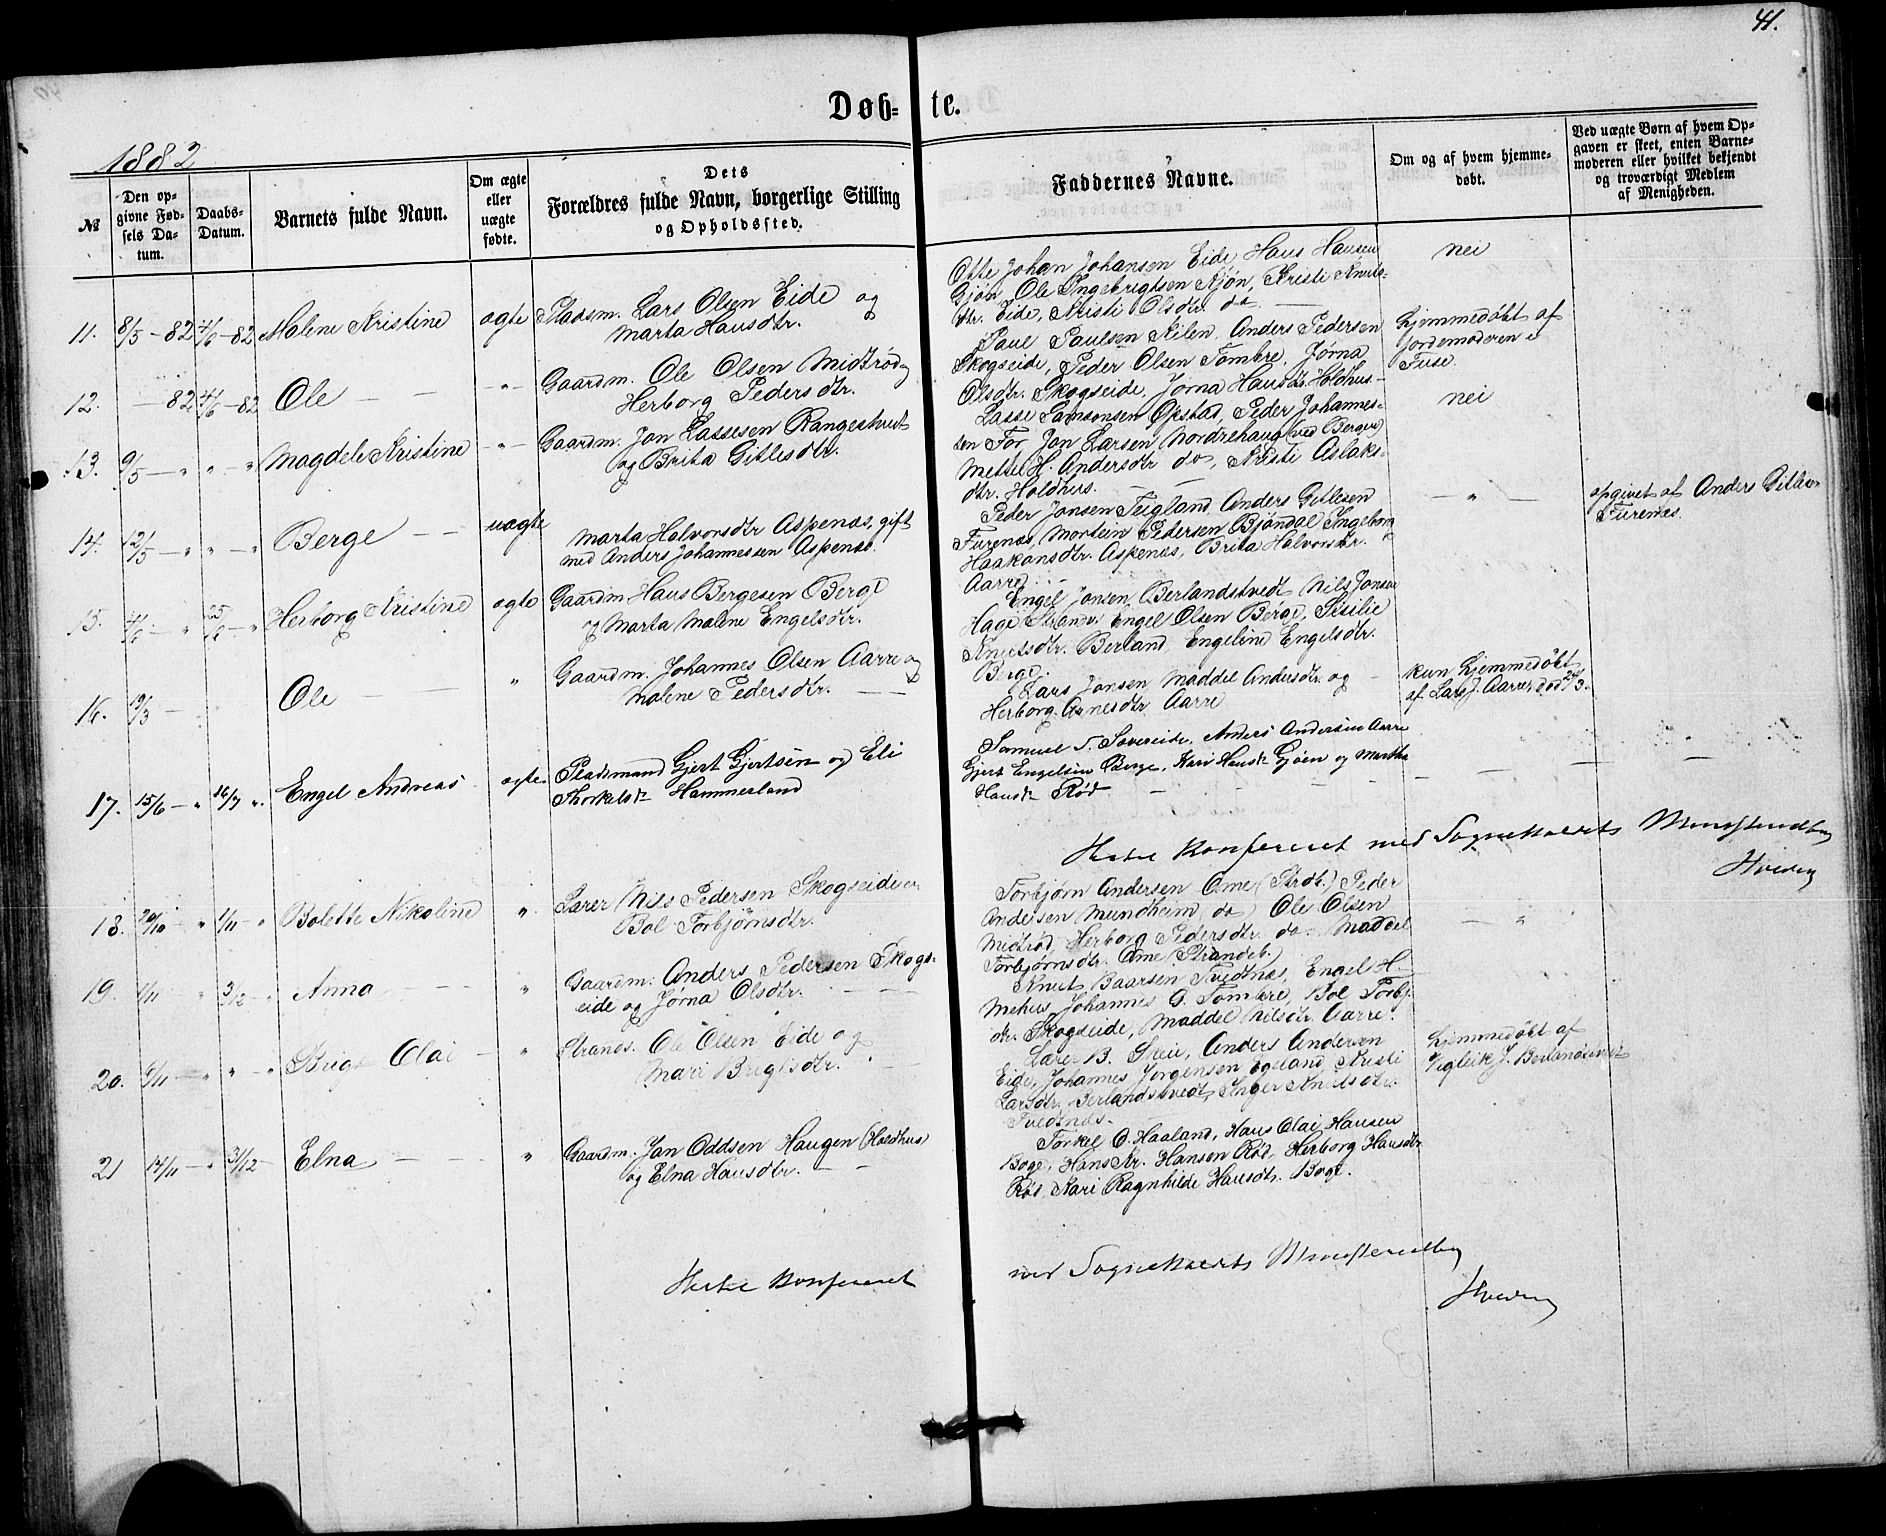 41.
Døb- te.
1882
№
Den op-
givne Fød-
sels Da-
tum.
Daabs-
Datum.
Barnets fulde Navn.
Om ægte
eller
uægte
fødte.
Dets
Forældres fulde Navn, borgerlige Stilling
og Opholdssted.
Faddernes Navne.
Om og af hvem hjemme-
døbt.
Ved uægte Børn af hvem Op-
gaven er skeet, enten Barne-
moderen eller hvilket bekjendt
og troværdigt Medlem
af Menigheden.
11. 8/5 - 82 4/6 - 82 Malene Kristine ægte Pladsm. Lars Olsen Eide og
Marta Hansdtr.
Otte Johan Johansen Eide, Hans Hansen
Gjøn, Ole Ingebrigtsen Gjøn, Kristi Knuts-
dtr. Eide, Kristi Olsdtr. do
nei
12. - 82 4/6 - 82 Ole - - - " - Gaardm. Ole Olsen Midtrød og
Herborg Pedersdtr.
Paul Paulsen Kilen, Anders Pedersen
Skogseide, Peder Olsen Tombre, Jørna
Olsdtr. Skogseide, Jorna Hansdtr. Holdhus -
Hjemmedøbt af
Jordemoderen i
Fuse.
13. 9/5 - " " - " Magdele Kristine - " - Gaardm. Jon Lassesen Rangestvedt
og Brita Gitlesdtr.
Lasse Samsonsen Opstad, Peder Johannes-
sen Før, Jon Larsen Nordrehaug (ved Bergen)
Mette H. Andersdtr do, Kristi Aslaks-
dtr. Holdhus. - -
nei
14. 12/5 - " " - " Berge - - uægte Marta Halvorsdtr Aspenæs, gift
med Anders Johannessen Aspenæs.
Peder Jonsen Teigland, Anders Gitlesen
Furenæs, Mortein Pedersen Bjöndal, Ingeborg
Haakonsdtr. Aspenæs, Brita Halvorsdtr.
Aarre. -
- " -
opgivet af Anders Gitlesen
Furenæs.
15. 4/6 - " 25/6 - " Herborg Kristine ægte Gaardm Hans Bergesen Berge
og Marta Malene Engelsdtr.
Engel Jonsen Berlandstvedt, Nils Jonsen
Hage Strandv. Engel Olsen Berge, Sesilie
Knutsdtr. Berland, Engeline Engelsdtr.
Berge.
16. 19/3 - Ole - - " Gaardm. Johannes Olsen Aarre og
Malene Pedersdtr. - -
Lars Jonsen, Maddel Andersdtr. og -
Herborg Arnesdtr. Aarre
kun hjemmedøbt
af Lars J. Aarre, død 24/3.
17. 15/6 - " 16/7 ". Engel Andreas ægte. Pladsmand Gjert Gjertsen og Eli
Thorkelsdr Hammerland
Samuel S. Sævereide, Anders Andersen Aarre
Gjert Engelsen Berge, Kari Hansdr Gjøen og Martha
Hansdr Rød. - - - -
Hertil Konfereret med Sognekaldets Ministerialbog
Hvoslef
18. 20/10 - " 1/11 - " Bolette Nikoline " Lærer Nils Pedersen Skogseide og
Bol Torbjørnsdtr.
Torbjørn Andersen Ome (Strdb.) Peder
Andersen Mundheim do) Ole Olsen
Midtrød, Herborg Pedersdtr. do Maddel
Torbjørnsdtr. Ome (Strandeb.)
- " -
19. 1/11 - " 3/12 - " Anna - - - " Gaardm. Anders Pedersen Skogs-
eide og Jørna Olsdtr. - -
Knut Baarsen Tvedtnæs, Engel H.
Mehus, Johannes O. Tombre, Bol Torbj.
dtr. Skogseide, Maddel Nilsdtr. Aarre.
20. 6/11 - " " - " Brigt Olai - " Strands. Ole Olsen Eide og
Mari Brigtsdtr. - -
Lars B. Skeie, Anders Andersen
Eide, Johannes Jørgensen Egeland, Kristi
Larsdtr. Berlandstvedt, Inger Knutsdtr.
Tvedtnæs. -
Hjemmedøbt af
Vigleik J. Berlandstvedt
21 14/11 - " 3/12 - Elna - - - " Gaardm. Jon Oddsen Haugen (Holdhus)
og Elna Hansdtr. - -
Torkel O. Haaland, Hans Olai Hansen
Boge, Hans Kr. Hansen Rød, Herborg Hansdtr
Rød, Kari Ragnhilde Hansdtr. Boge.
Hertil Konfereret med Sognekaldets Ministerialbog